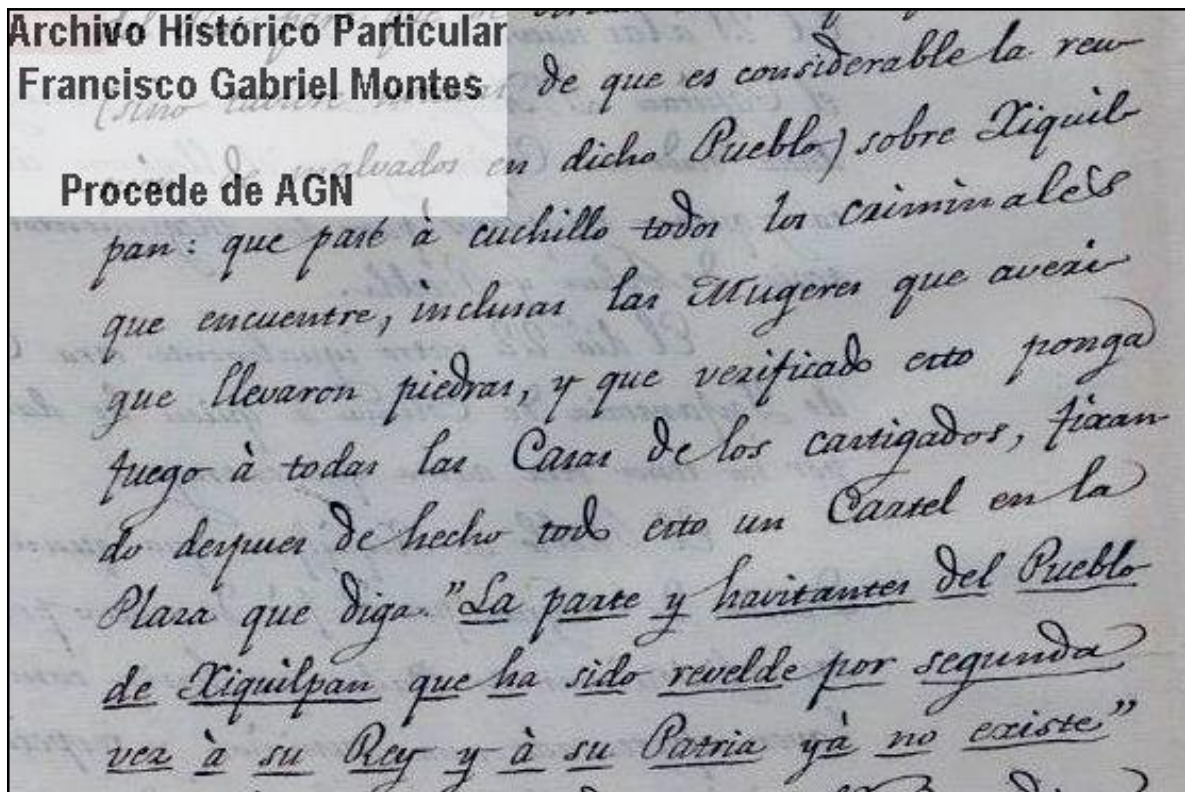 Archivo Histórico Particular
Francisco Gabriel Montes
Procede de AGN
de que es considerable la reu
nion de malvados en dicho Pueblo) sobre Xiquil
pan: que pase à cuchillo todos los criminales
que encuentre, inclusas las Mugeres que averi
gue llevaron piedras, y que verificado esto ponga
fuego à todas las Casas de los castigados, fixan
do despues de hecho todo esto un Cartel en la
Plaza que diga. "La parte y havitantes del Pueblo
de Xiquilpan que ha sido revelde por segunda
vez à su Rey y à su Patria yà no existe"